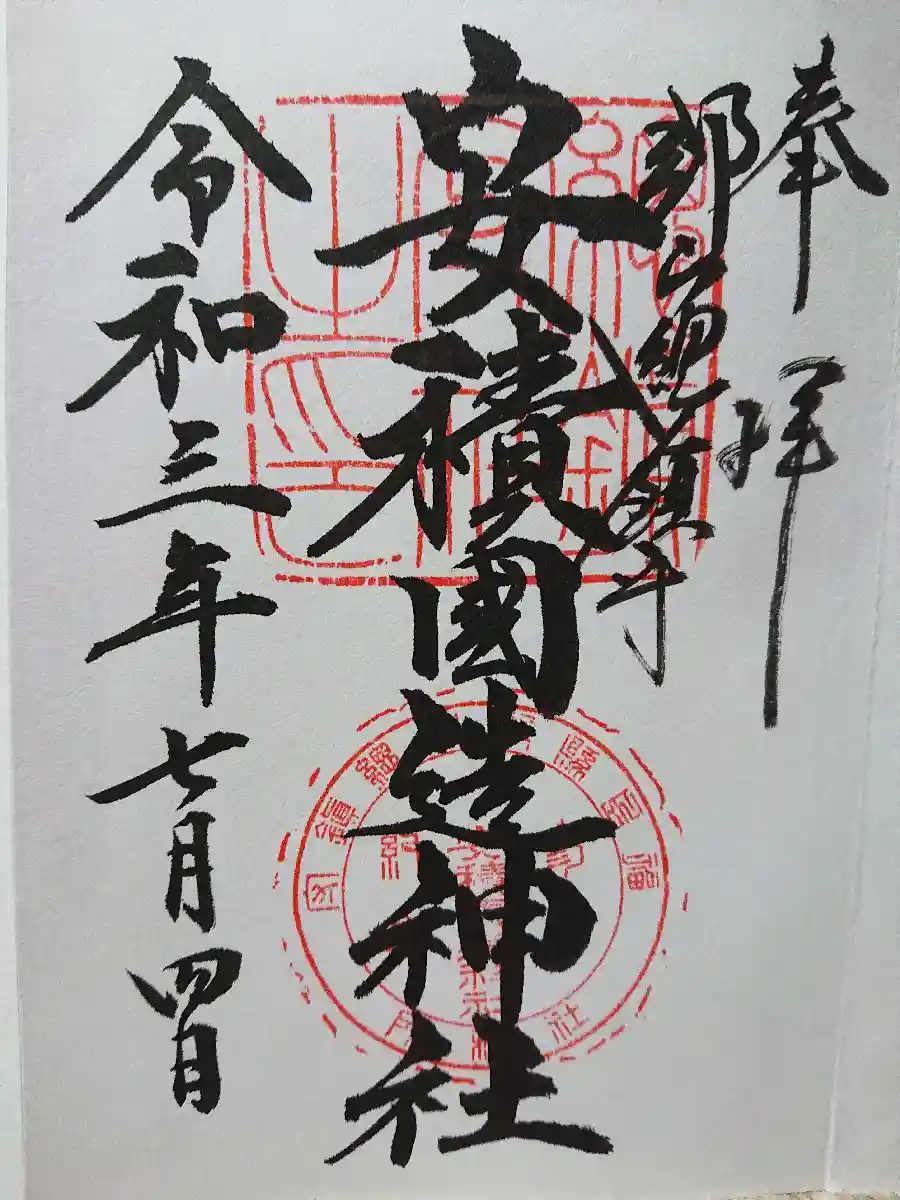 奉拝
郡山總鎮守
安積國造神社
令和三年七月四日